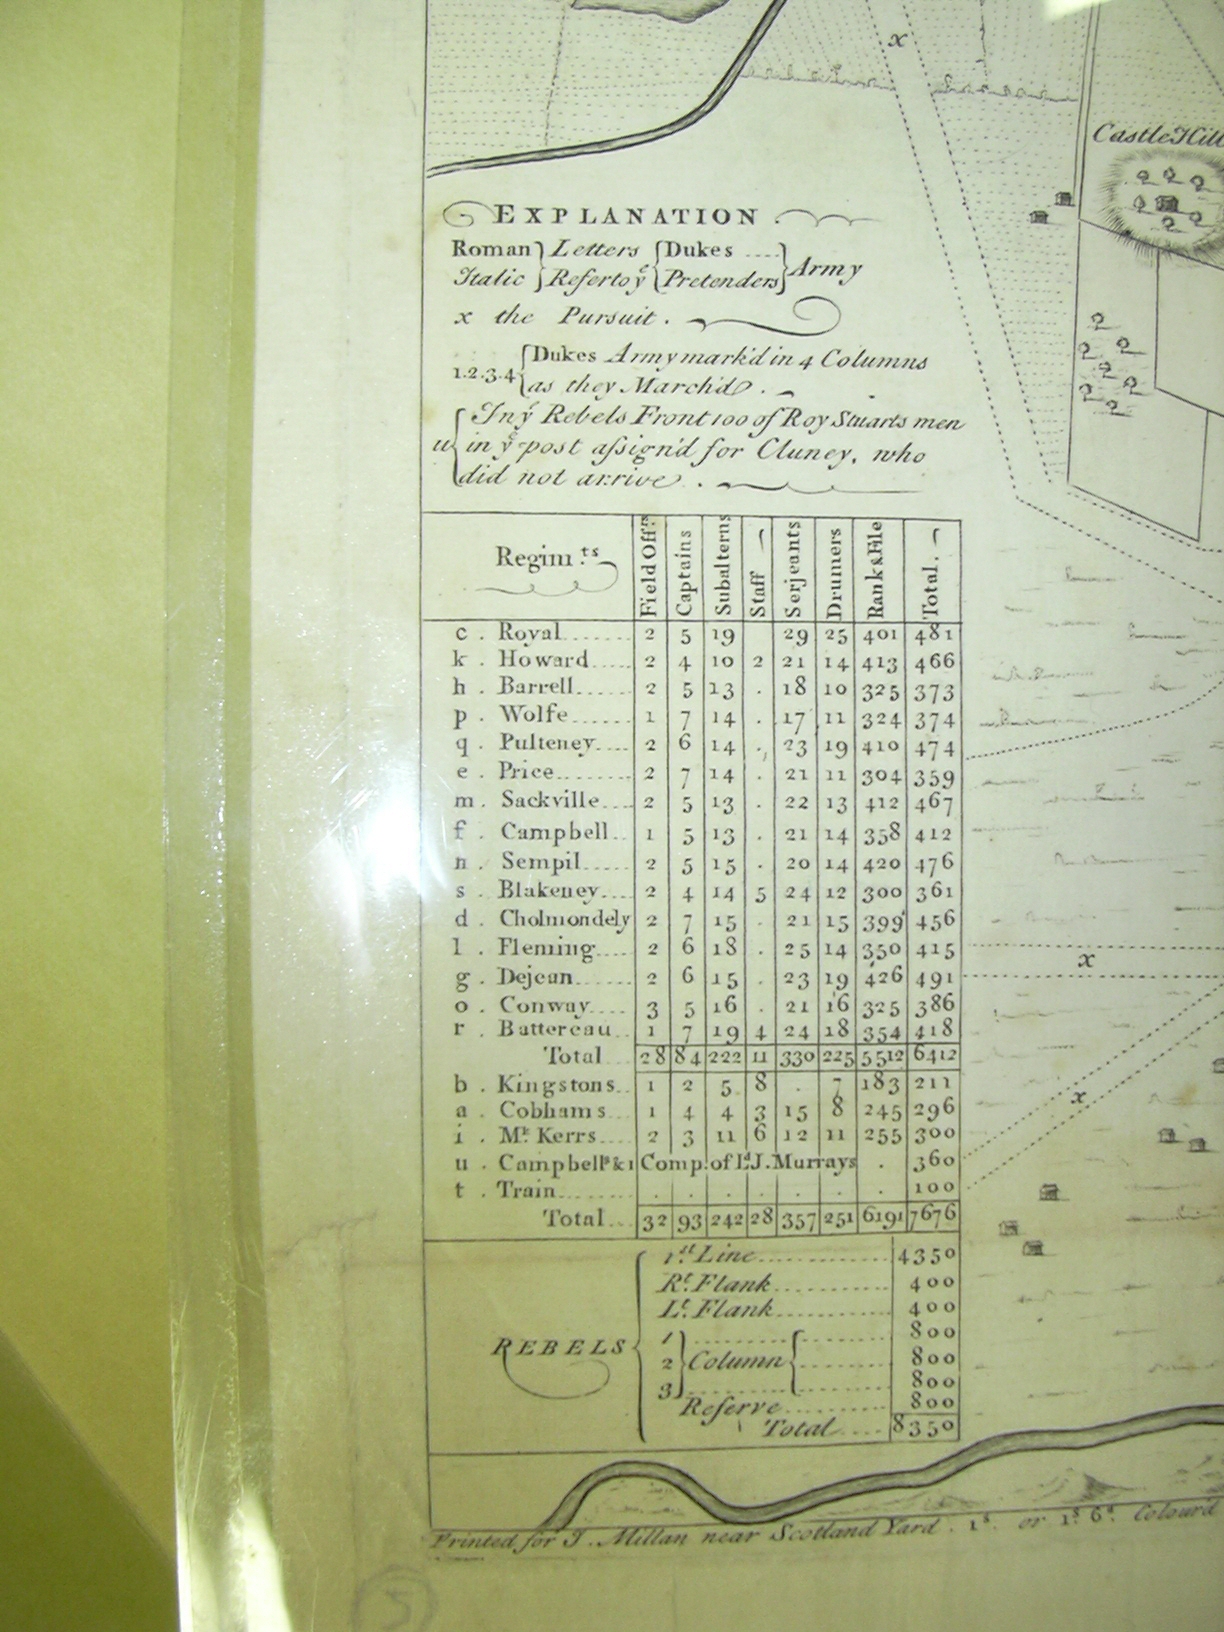 x
Castle Hill
EXPLANATION.
Roman } Letters { Dukes .... } Army
Italic } Refer to yᵉ { Pretenders } Army
x the Pursuit.
1.2.3.4 { Dukes Army mark'd in 4 Columns
as they March'd.
u { In yᵉ Rebels Front 100 of Roy Stuarts men
in yᵉ post aſsign'd for Cluney, who
did not arrive.
Regim.ᵗˢ Field Off.ʳˢ Captains Subalterns Staff Serjeants Drumers Rank & File Total.
c . Royal....... 2 5 19 29 25 401 481
k . Howard..... 2 4 10 2 21 14 413 466
h . Barrell...... 2 5 13 . 18 10 325 373
p . Wolfe....... 1 7 14 . 17 11 324 374
q . Pulteney.... 2 6 14 . 23 19 410 474
e . Price........ 2 7 14 . 21 11 304 359
m . Sackville... 2 5 13 . 22 13 412 467
f . Campbell.. 1 5 13 . 21 14 358 412
n . Sempil..... 2 5 15 . 20 14 420 476
s . Blakeney.... 2 4 14 5 24 12 300 361
d . Cholmondely 2 7 15 . 21 15 399 456
l . Fleming.... 2 6 18 . 25 14 350 415
g . Dejean..... 2 6 15 . 23 19 426 491
o . Conway.... 3 5 16 . 21 16 325 386
r . Battereau.. 1 7 19 4 24 18 354 418
Total... 28 84 222 11 330 225 5512 6412
b . Kingstons.. 1 2 5 8 . 7 183 211
a . Cobhams... 1 4 4 3 15 8 245 296
i . Mᵏ Kerrs.... 2 3 11 6 12 11 255 300
u . Campbellˢ & 1 Comp. of Lᵈ J. Murrays . 360
t . Train......... . . . . . . . 100
Total... 32 93 242 28 357 251 6191 7676
REBELS
1ˢᵗ Line............... 4350
Rᵗ. Flank............. 400
Lᵗ. Flank............. 400
1 ............ 800
2 Column ......... 800
3 ............ 800
Reſerve............ 800
Total.... 8350
x
x
Printed for J. Millan near Scotland Yard. 1ˢ. or 1ˢ. 6ᵈ. Colour'd
5